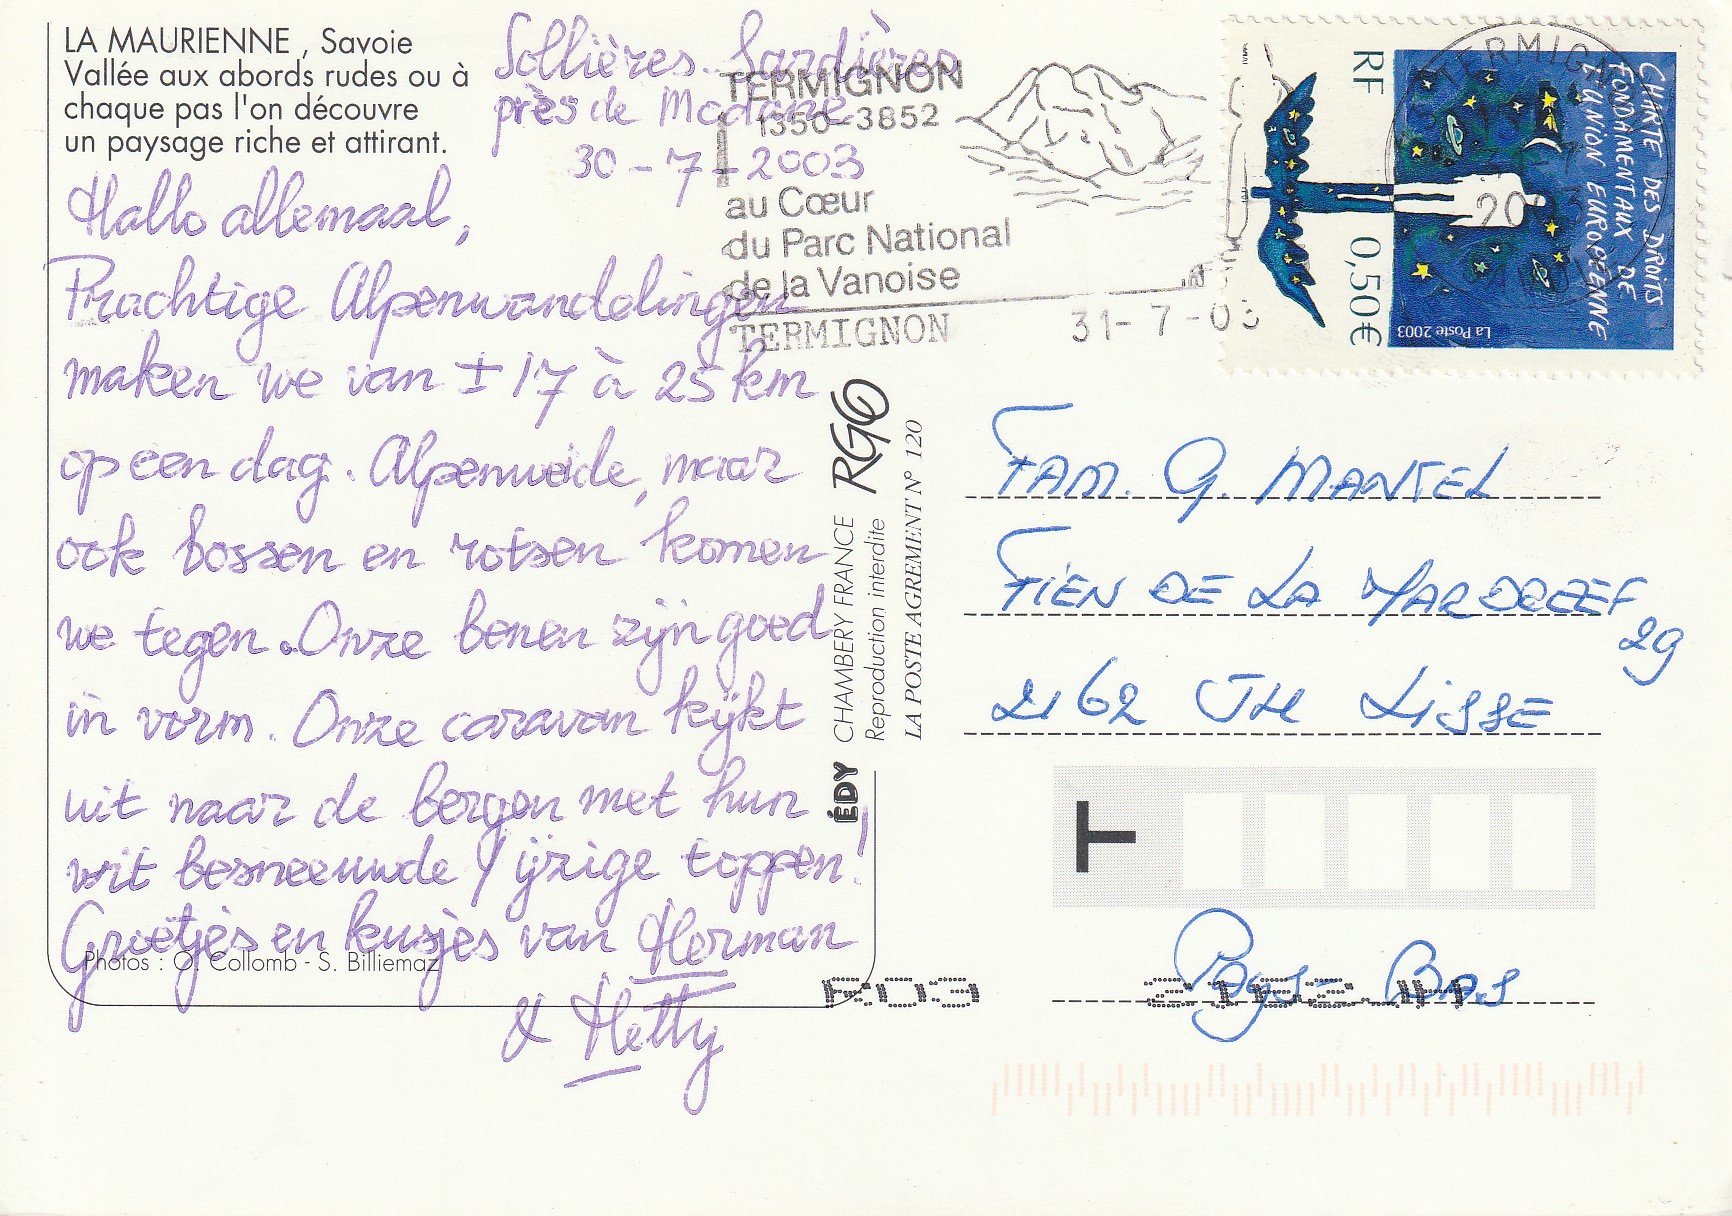 LA MAURIENNE , Savoie
Vallée aux abords rudes ou à
chaque pas l'on découvre
un paysage riche et attirant.
Sollières-Sardières
près de Modane
30-7-2003
Hallo allemaal,
Prachtige Alpenwandelingen
maken we van ± 17 à 25 km
op een dag. Alpenweide, maar
ook bossen en rotsen komen
we tegen. Onze benen zijn goed
in vorm. Onze caravan kijkt
uit naar de bergen met hun
wit besneeuwde / ijzige toppen!
Groetjes en kusjes van Herman
& Hetty
Photos : O. Collomb - S. Billiemaz
TERMIGNON
1350-3852
au Cœur
du Parc National
de la Vanoise
TERMIGNON
31-7-03
TERMIGNON
CHARTE DES DROITS
FONDAMENTAUX DE
L'UNION EUROPÉENNE
RF
0,50€
La Poste 2003
ÉDY CHAMBERY FRANCE RGO
Reproduction interdite
LA POSTE AGREMENT N° 120
FAM. G. MANTEL
TIEN DE LA MARDREEF
29
2162 JH LISSE
T
Pays-Bas